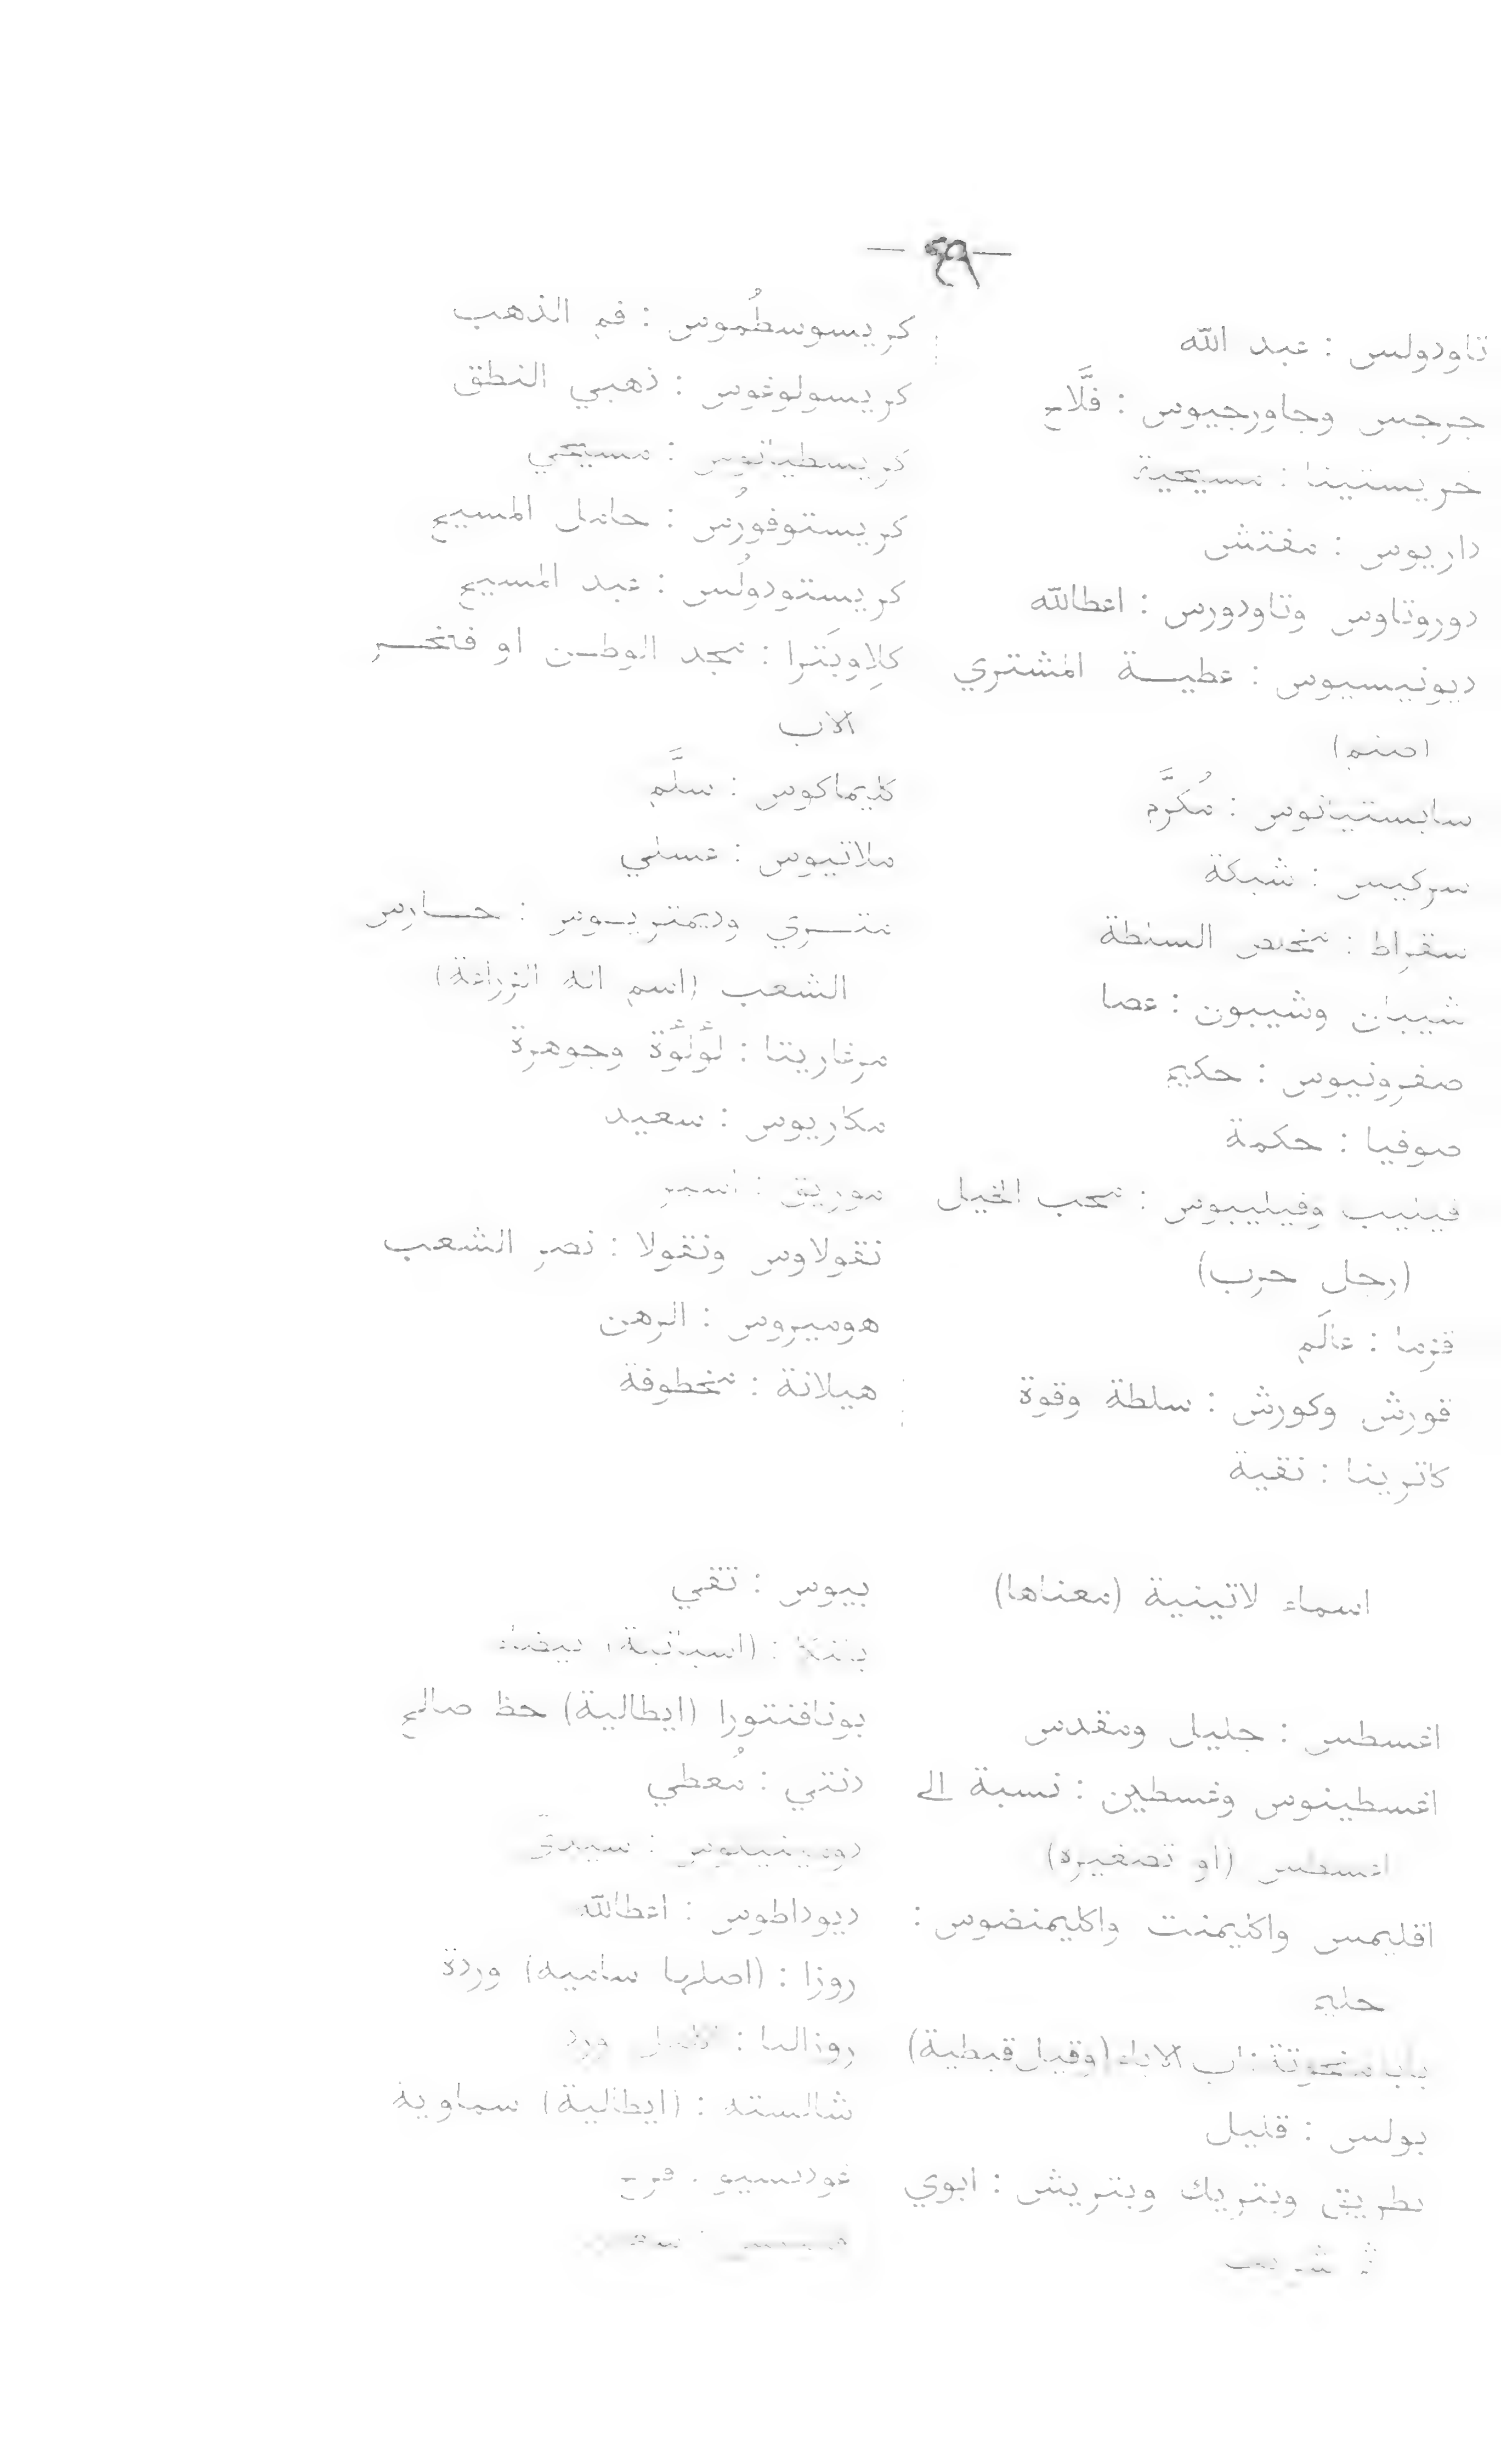 — ٤٩ —
تاودولس : عبد الله
جرجس وجاورجيوس : فلَّاح
خريستينا : مسيحية
داريوس : مفتش
دوروتاوس وتاودورس : اعطالله
ديونيسيوس : عطيـة المشتري
(صنم)
سابستيانوس : مُكرَّم
سركيس : شبكة
سقراط : مخلص السلطة
شيبان وشيبون : عصا
صفرونيوس : حكيم
صوفيا : حكمة
فيليب وفيليبوس : محب الخيل
(رجل حرب)
قزما : عالَم
قورش وكورش : سلطة وقوة
كاترينا : نقية
كريسوسطُموس : فم الذهب
كريسولوغوس : ذهبي النطق
كريسطيانوس : مسيحي
كريستوفورُس : حامل المسيح
كريستودولُس : عبد المسيح
كلِاوبَترا : مجد الوطـن او فخـر
الاب
كليماكوس : سلَّم
ملاتيوس : عسلي
متـري وديمتريـوس : حـارس
الشعب (اسم اله الزراعة)
مرغاريتا : لؤلؤة وجوهرة
مكاريوس : سعيد
موريق : اسمر
نقولاوس ونقولا : نصر الشعب
هوميروس : الرهن
هيلانة : مخطوفة
اسماء لاتينية (معناها)
اغسطس : جليل ومقدس
اغسطينوس وغسطين : نسبة الى
اغسطس (او تصغيره)
اقليمس واكليمنت واكليمنضوس :
حليم
بابا منحوتة : اب الاباء (وقيل قبطية)
بولس : قليل
بطريق وبتريك وبتريش : ابوي
بيوس : تقي
(اسبانية) بيضاء
بونافنتورا (ايطالية) حظ صالح
دنتي : مُعطي
دومينيدوس : سيديّ
ديوداطوس : اعطالله
روزا : (اصلها سامية) وردة
روزاليا : ورد
شالسته : (ايطالية) سماوية
غودنسيو : فرح